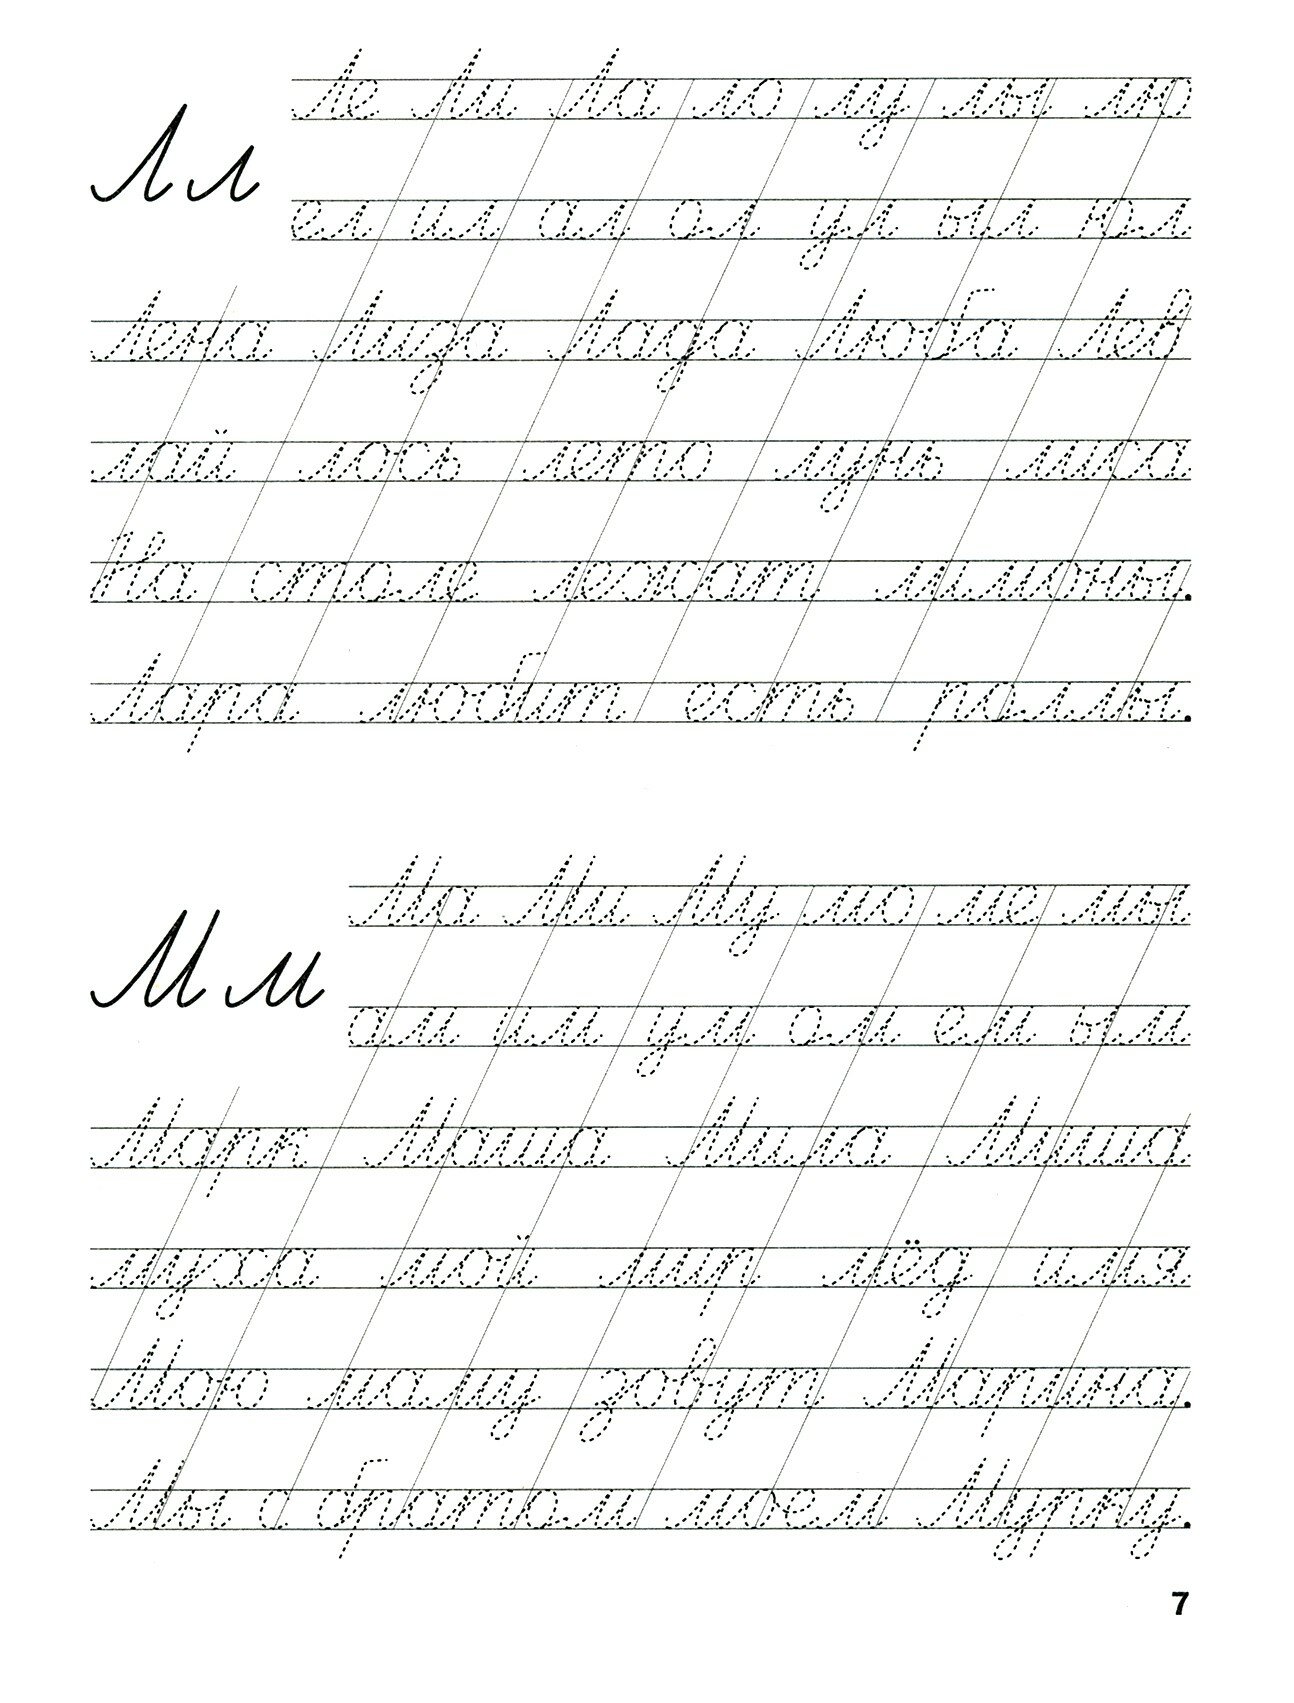 Ле Ли Ла ло лу лы лю
Л л
ел ил ал ол ул ыл юл
Лена Лида Лада Люба Лев
лай лось лето лунь лиса
На столе лежат лимоны.
Лара любит есть роллы.
Ма Ми Му мо ме мы
М м
ам им ум ом ем ым
Марк Маша Мила Миша
муха мой мир мёд имя
Мою маму зовут Марина.
Мы с братом моем Мурку.
7